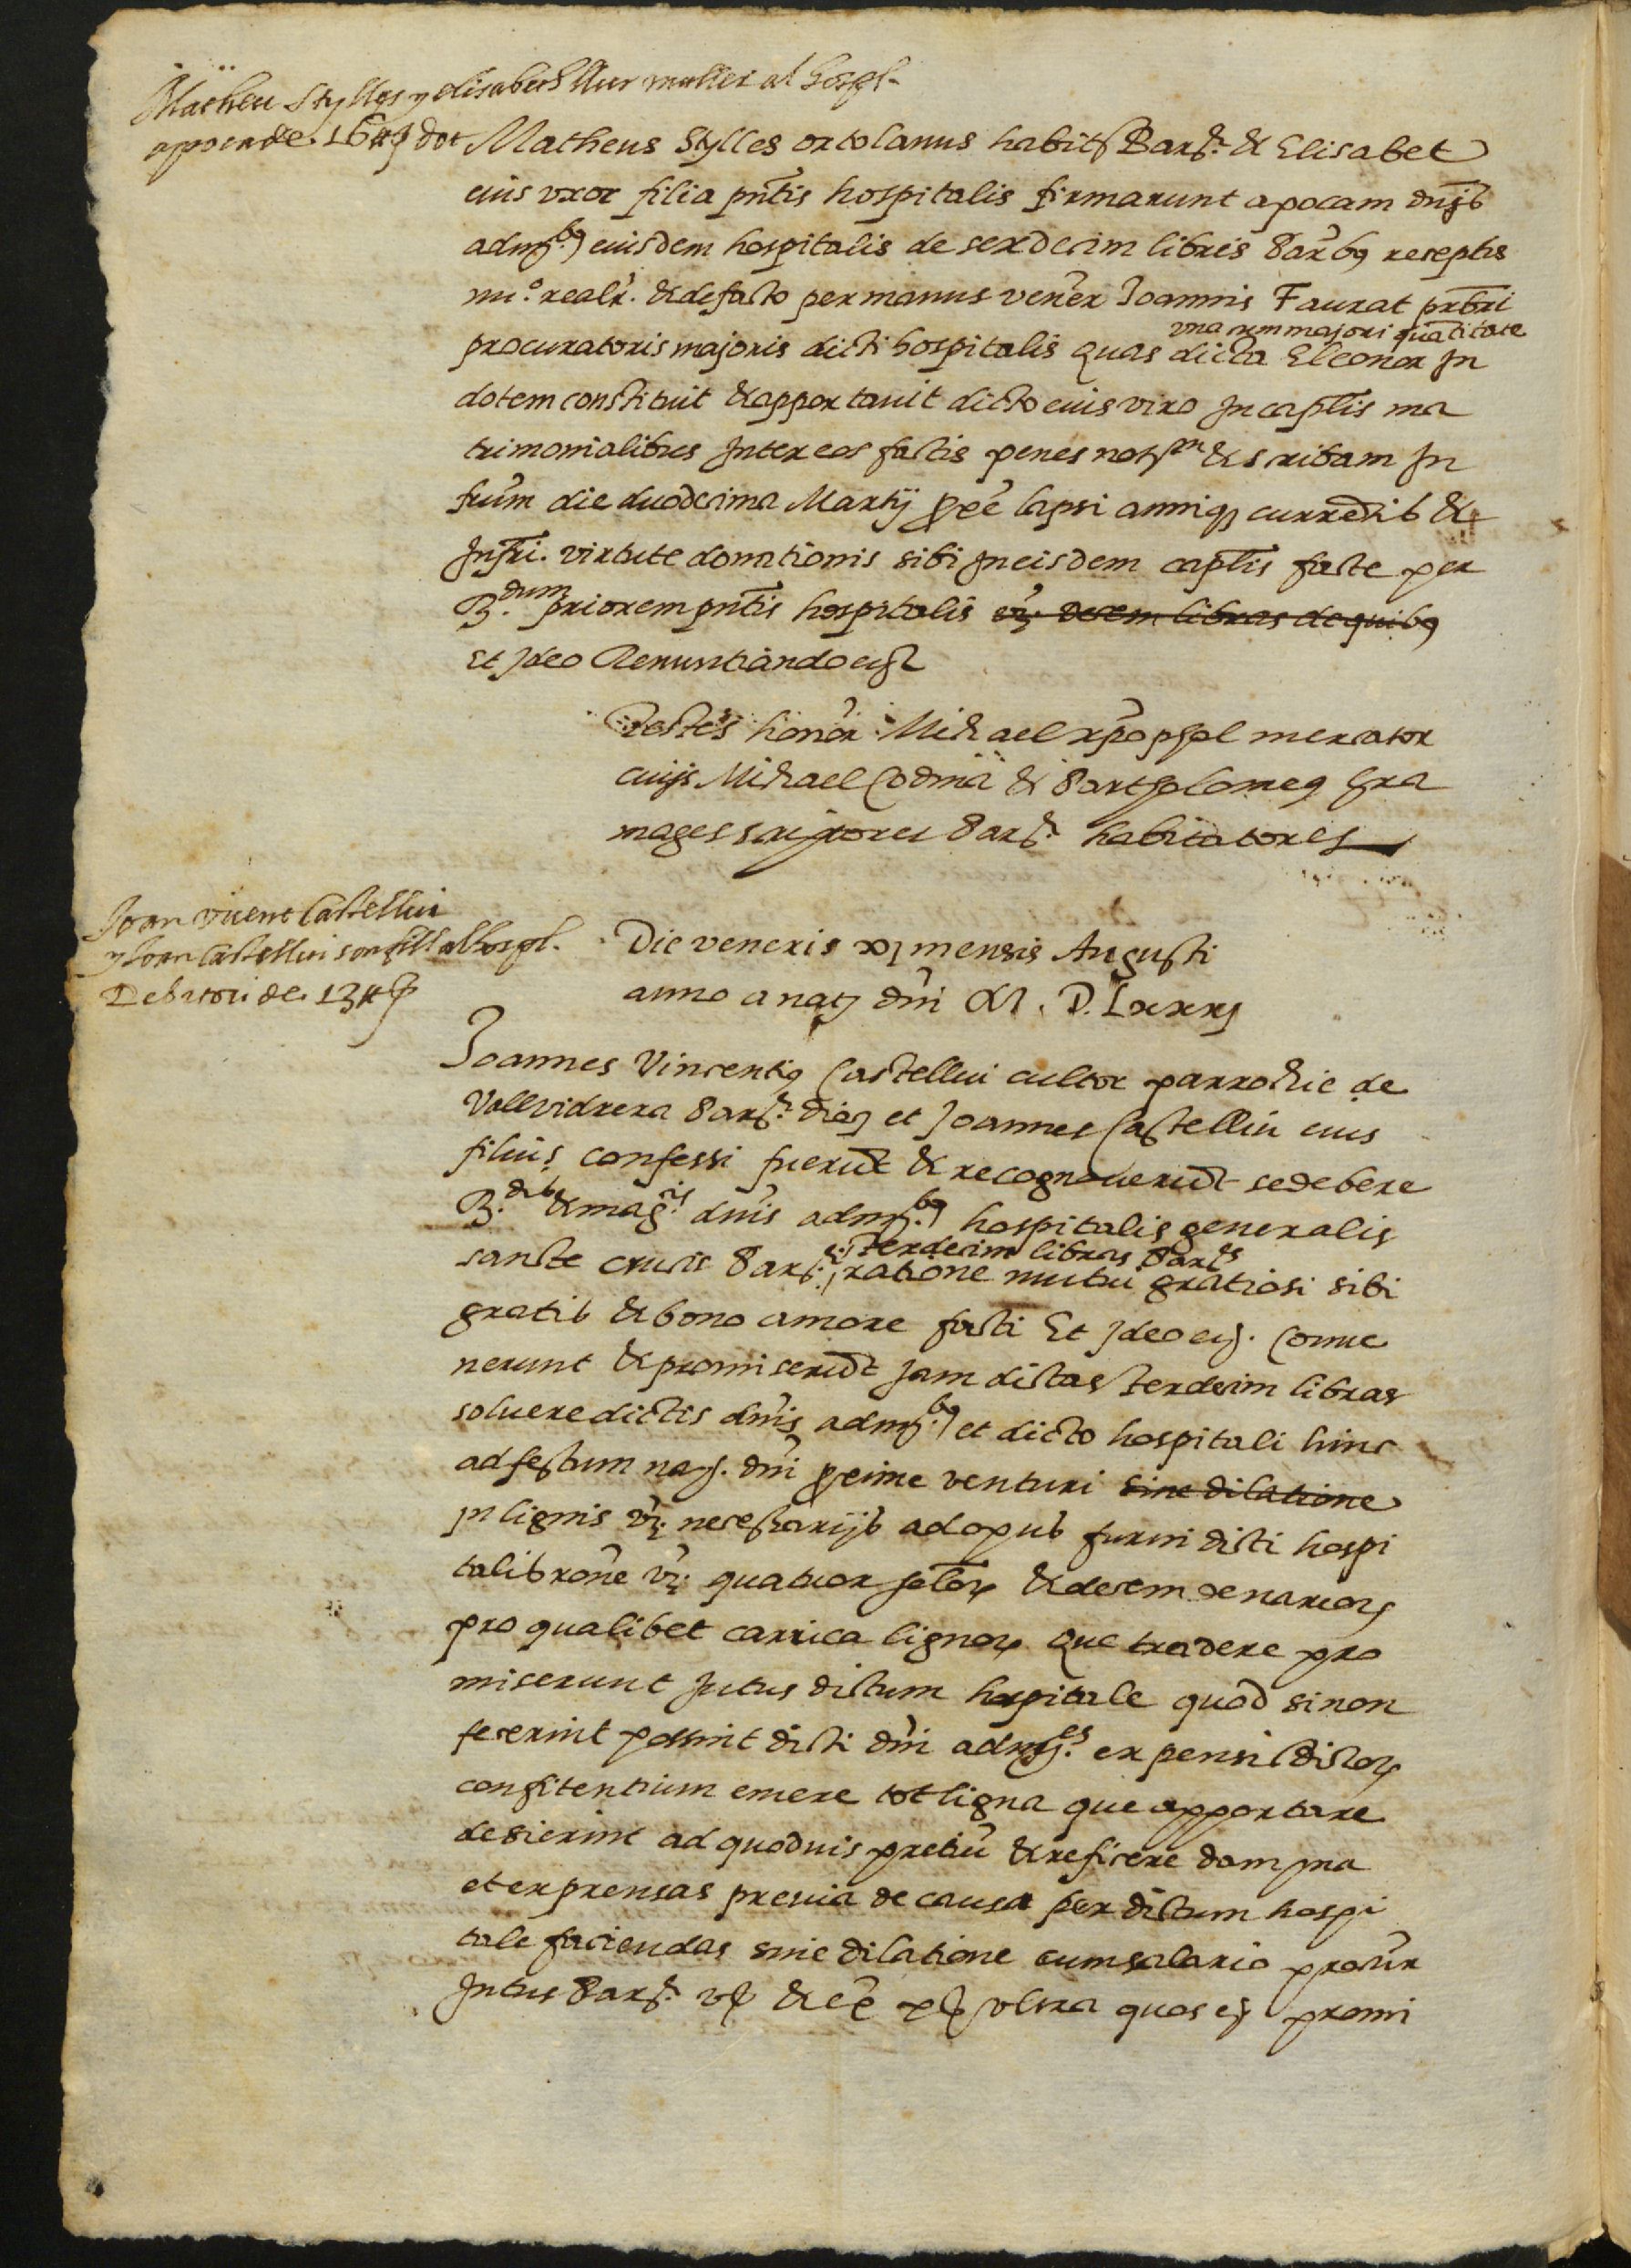 Matheu Stylles y elisabet sa muller al hospl.
apoca de 16 ₶ dot
Matheus Stylles ortolanus habit Barȝ. & Elisabet
eius vxor filia pntis hospitalis firmarunt apocam dnis
admbꝫ eiusdem hospitalis de sexdecim libris Barbꝫ receptis
nuo. realr. & de facto per manus vener Joannis Faurat prbri
vna cum majori quatitate
procuratoris majoris dicti hospitalis quas dicta Eleonor In
dotem constituit & apportauit dicto eius viro In caplis ma
trimonialibus Inter eos factis penes notm & scribam In
frum die duodecima Martij pxe lapsi anniqꝫ currentis &
Infri. virtute donationis sibi In eisdem caplis facte per
R.dum priorem pntis hospitalis vꝫ decem libras de quibꝫ
Et Ideo Renuntiando etc
Testes honor Michael xpophol mercator
ciujs Michael Codina & Bartholomeꝫ Gra
mages scriptores Barȝ. habitatores
Joan vicent Castellui
y Joan Castellui son fill al hospl.
Debitori de 13 ₶
Die veneris xj mensis Augusti
anno a natȝ dni M. D. Lxxxj
Joannes Vincentiꝫ Castellui cultor parrochie de
Vallvidrera Barȝ. dioȝ et Joannes Castellui eius
filius confessi fuerut & recognouerut se debere
R.dis & magcis. dnis admbꝫ hospitalis generalis
terdecim libras Bares
sancte crucis Barȝ. ratione mutui gratiosi sibi
gratis & bono amore facti Et Ideo etc. Conue
nerunt & promiserut Jam dictas terdecim libras
soluere dictis dnis admbꝫ et dicto hospitali hinc
ad festum natȝ. dni proxime venturi sine dilatione
In lignis vꝫ. necessarijs ad opus furni dicti hospi
talis rone vꝫ. quatuor solorꝝ & decem denariorꝝ
pro qualibet carrica lignorꝝ que tradere pro
miserunt Intus dictum hospitale quod si non
fecerint possint dicti dni admes. expensis dictorꝝ
confitentium emere tot ligna que apportare
desierint ad quoduis pretiu & reficere damna
et expensas preuia de causa per dictum hospi
tale faciendas sine dilatione cum salario procur
Intus Barȝ. vꝫ & ex pꝫ vltra quos etc promi